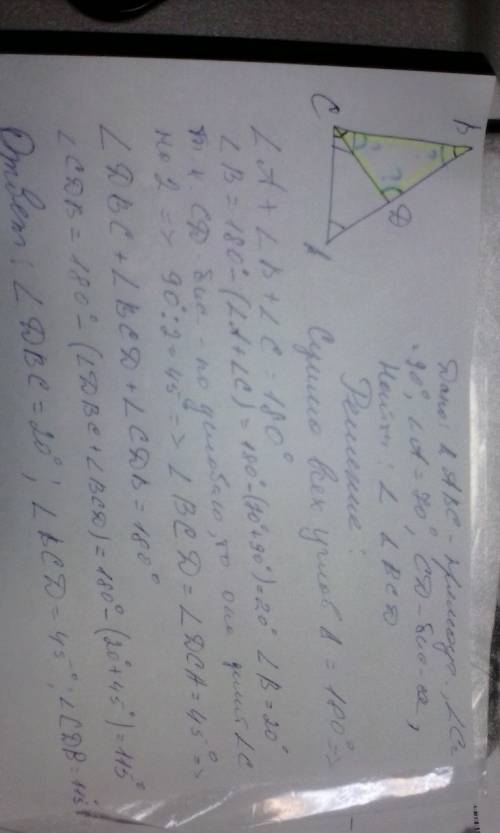 Дано: △ ABC - прямоуг., ∠C=
90°, ∠A=70°, CD-бис-са,
Найти: ∠ BCD
Решение:
Сумма всех углов △ = 180° =>
∠A + ∠B + ∠C = 180°
∠B = 180° - (∠A+∠C) = 180° - (70°+90°) = 20° ∠B = 20°
т.к. CD-бис-по условию, то она делит ∠C
на 2 => 90°:2=45° => ∠BCD = ∠DCA = 45° =>
∠DBC + ∠BCD + ∠CDB = 180°
∠CDB = 180° - (∠DBC + ∠BCD) = 180° - (20°+45°) = 115°
Ответ: ∠DBC = 20°; ∠BCD = 45°; ∠CDB = 115°
B
C
D
A
?